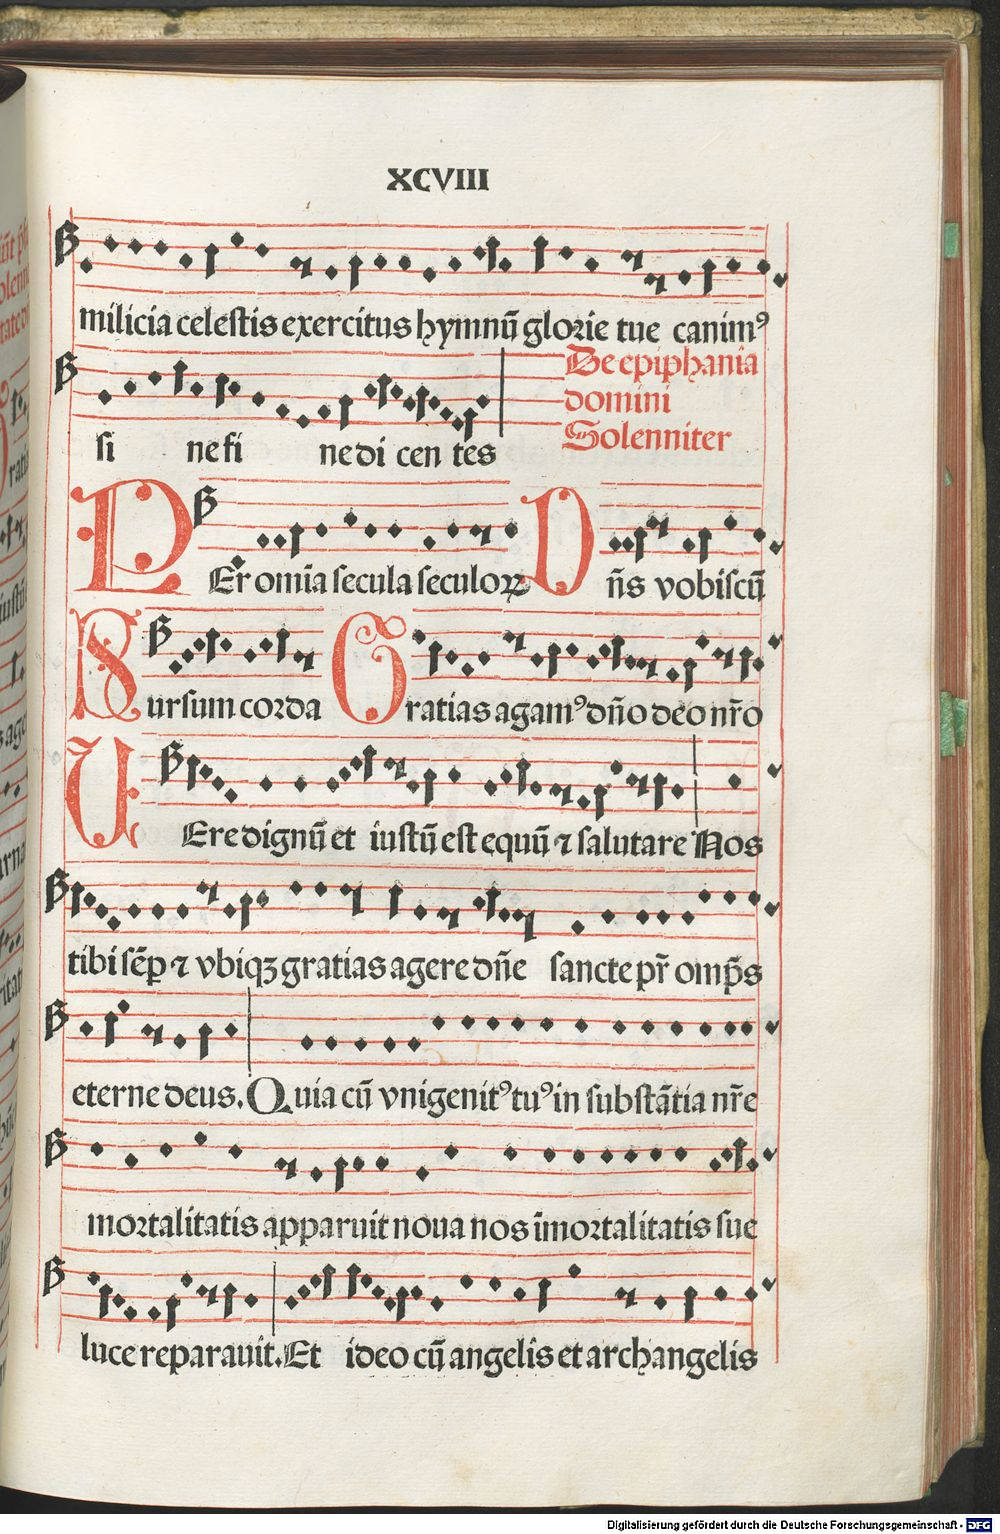 XCVIII
milicia celestis exercitus hymnū glorie tue canimꝰ
De epiphania
domini
Solenniter
si ne fi ne di cen tes
PEr om̄ia secula seculoꝝ Dn̄s vobiscū
Sursum corda Gratias agamꝰ dn̄o deo nr̄o
VEre dignū et iustū est equū ⁊ salutare Nos
tibi sēꝑ ⁊ vbiqꝫ gratias agere dn̄e sancte pr̄ omp̄s
eterne deus. Quia cū vnigenitꝰ tuꝰ in substātia nr̄e
mortalitatis apparuit noua nos īmortalitatis sue
luce reparauit. Et ideo cū angelis et archangelis
Digitalisierung gefördert durch die Deutsche Forschungsgemeinschaft - DFG